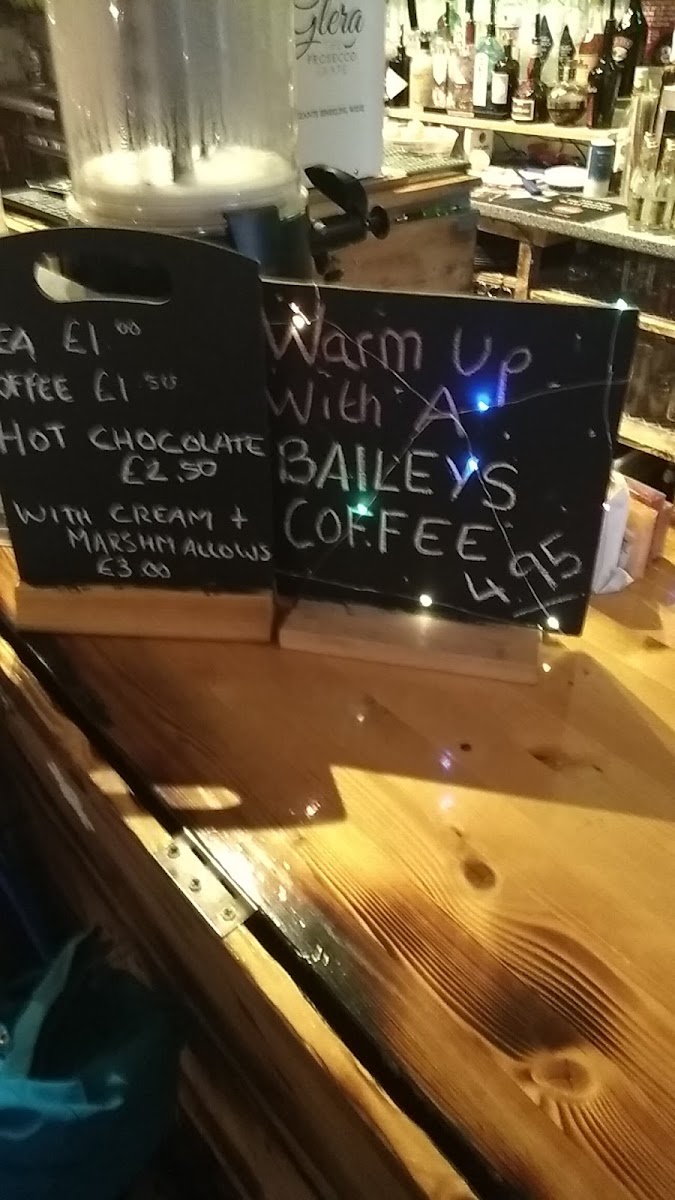 Glera
PROSECCO
EA £1.00
OFFEE £1.50
HOT CHOCOLATE
£2.50
WITH CREAM +
MARSHMALLOWS
£3.00
Warm Up
With A
BAILEYS
COFFEE
4.95